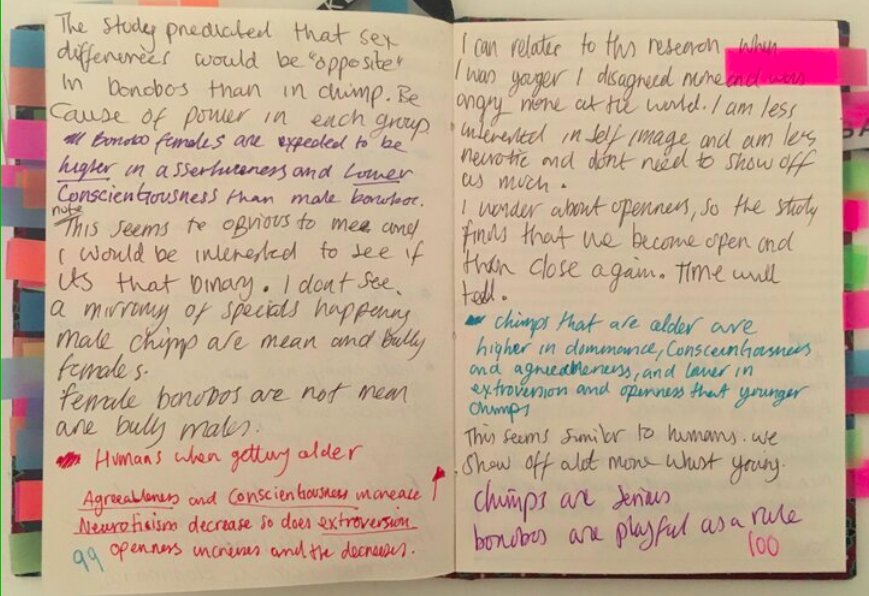 The study predicated that sex
differences would be "opposite"
in bonobos than in chimp. Be
Cause of power in each group.
Bonobo females are expected to be
higher in assertiveness and Lower
Conscientiousness than male bonoboe.
note
This seems te obvious to mee and
I would be interested to see if
its that binary. I dont see.
a mirroring of specials happening
male chimp are mean and bully
females.
female bonobos are not mean
and bully males.
Humans when getting older
Agreeableness and Conscientiousness increase
Neuroticism decrease so does extroversion
openness increases and the decreases.
99
I can relater to this research when
I was yonger I disagreed more and was
angry more at the world. I am less
interested in self image and am less
neurotic and dont need to show off
as much.
I wonder about openness, so the study
finds that we become open and
then close again. Time will
tell.
chimps that are older are
higher in dominance, Conscienhousness
and agreeableness, and lower in
extroversion and openness that younger
chimps
This seems similar to humans. we
show off alot more whilst young.
chimps are serious
bonobos are playful as a rule
100